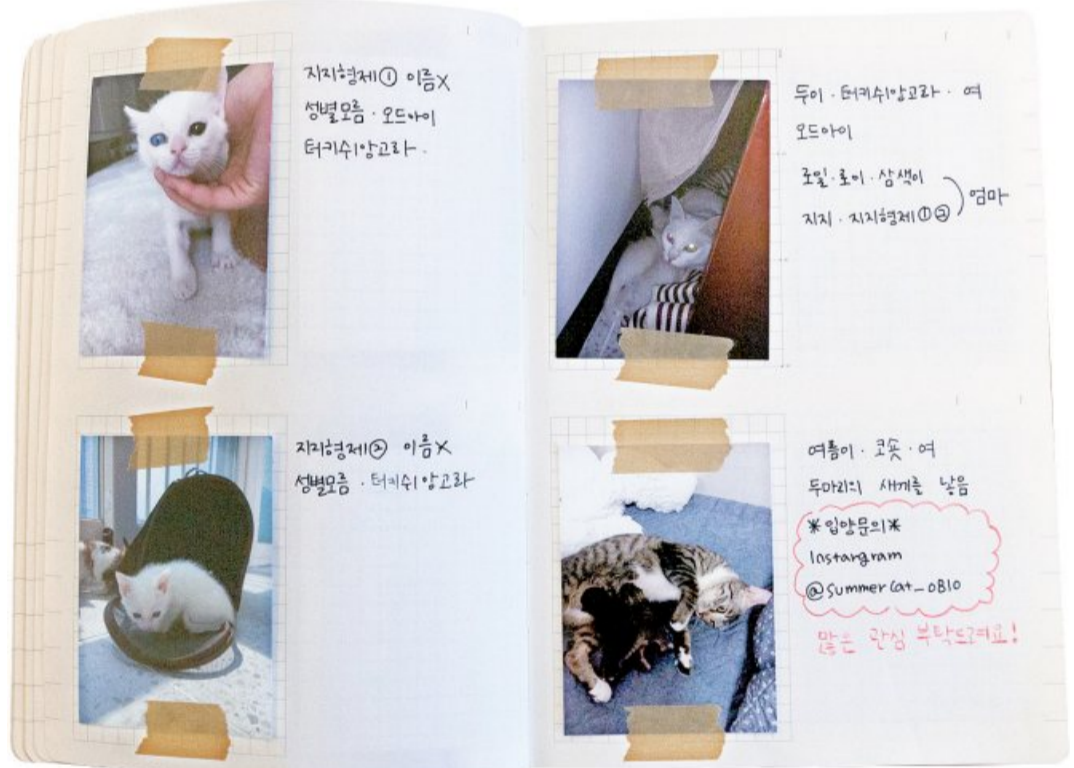 지지형제① 이름X
성별모름 · 오드아이
터키쉬앙고라 .
지지형제② 이름X
성별모름 · 터키쉬앙고라
두이 · 터키쉬앙고라 · 여
오드아이
로일 · 로이 · 삼색이
지지 · 지지형제①② 엄마
여름이 · 코숏 · 여
두마리의 새끼를 낳음
*입양문의*
Instargram
@summercat_0810
많은 관심 부탁드려요!